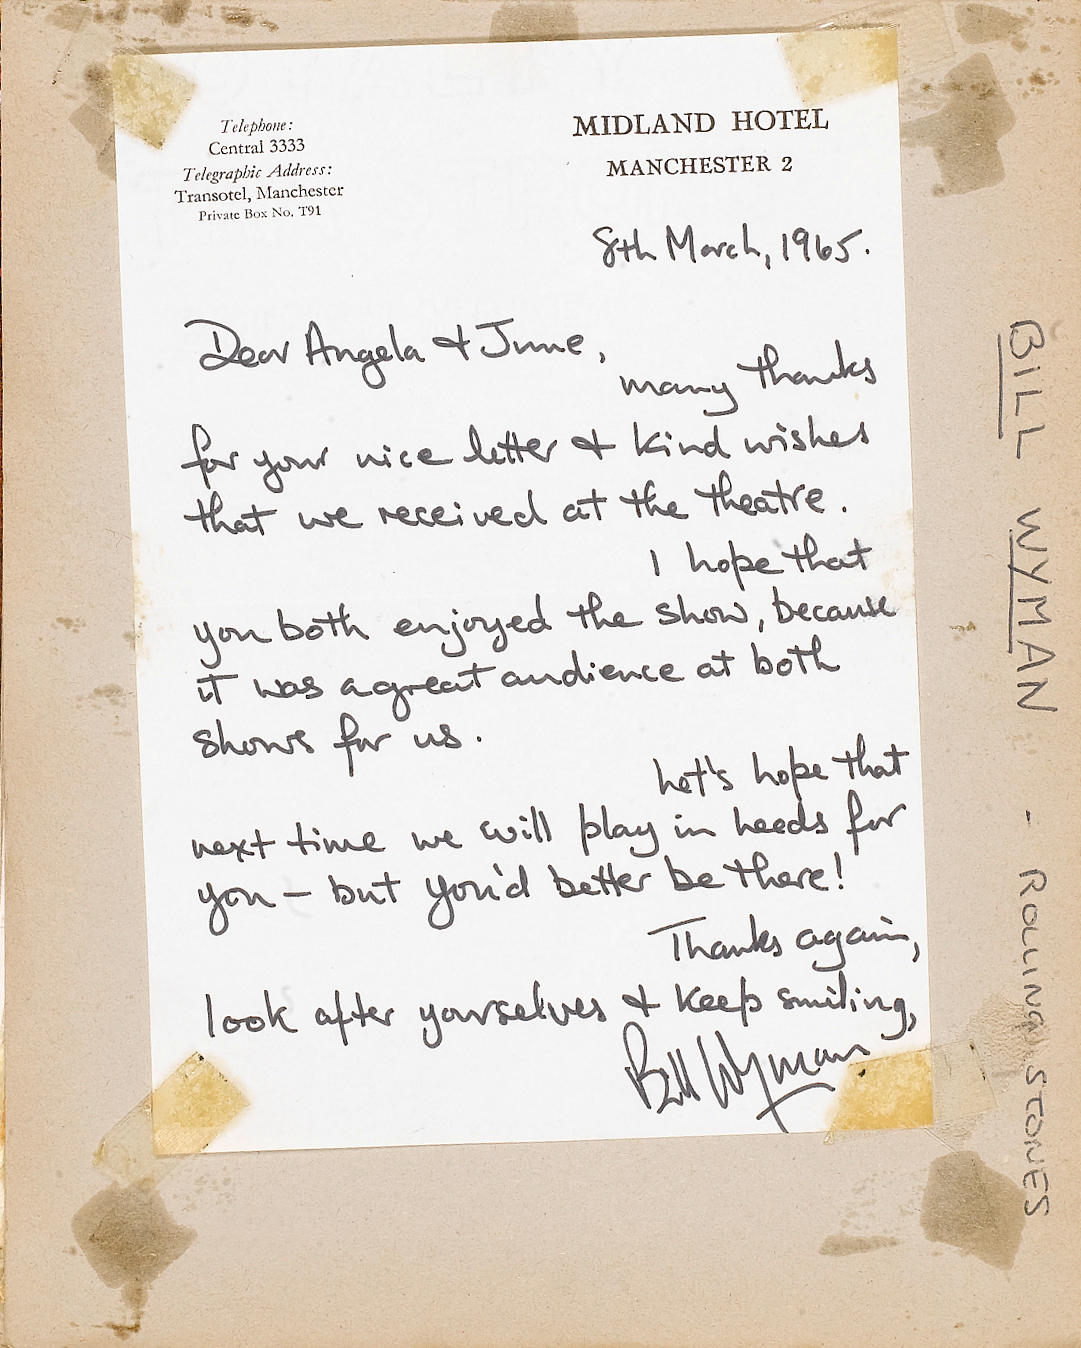 Telephone:
Central 3333
Telegraphic Address:
Transotel, Manchester
Private Box No. T91
MIDLAND HOTEL
MANCHESTER 2
8th March, 1965.
Dear Angela & June,
many thanks
for your nice letter & kind wishes
that we received at the theatre.
I hope that
you both enjoyed the show, because
it was a great audience at both
shows for us.
Let's hope that
next time we will play in Leeds for
you – but you'd better be there!
Thanks again,
look after yourselves & keep smiling,
Bill Wyman
BILL WYMAN - ROLLING STONES